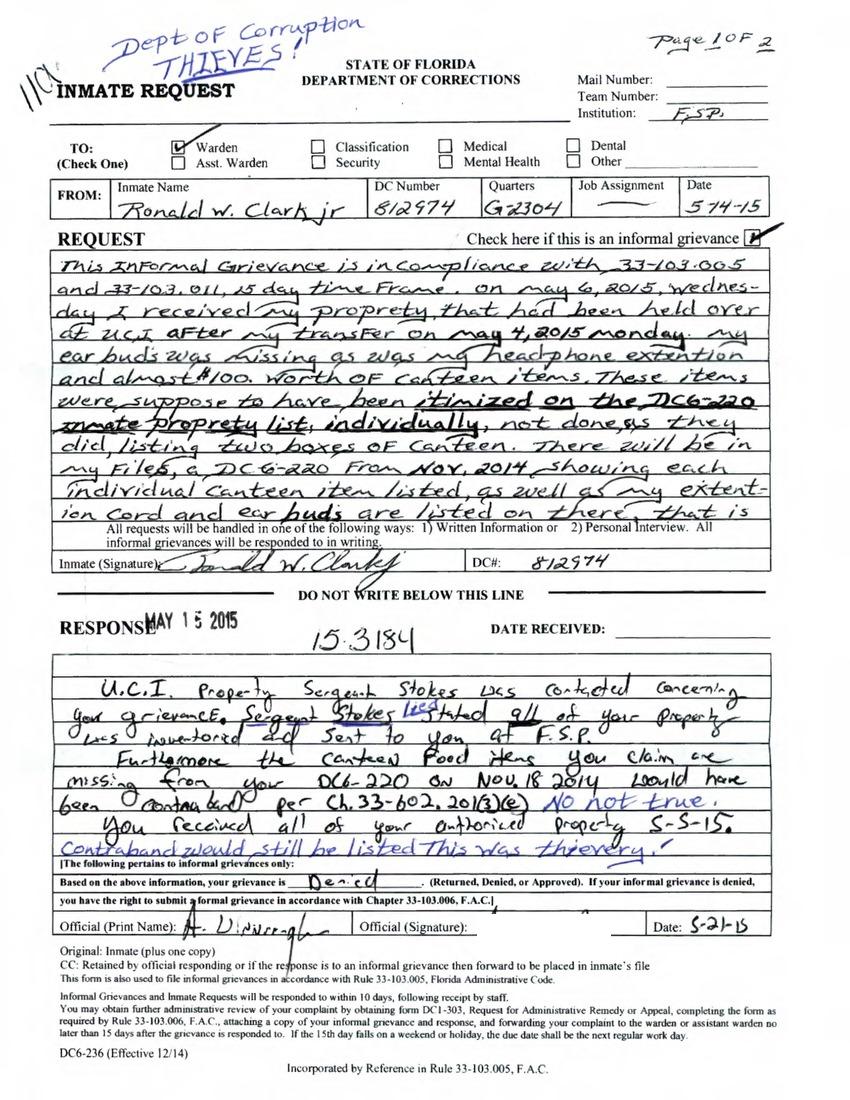 Dept of Corruption
THIEVES!
Page 1 OF 2
STATE OF FLORIDA
DEPARTMENT OF CORRECTIONS
INMATE REQUEST
Mail Number:
Team Number:
Institution: F.S.P.
TO: Warden Classification Medical Dental
(Check One) Asst. Warden Security Mental Health Other
FROM: Inmate Name DC Number Quarters Job Assignment Date
Ronald W. Clark jr 812974 G-2304 5-14-15
REQUEST Check here if this is an informal grievance
This Informal Grievance is in compliance with 33-103.005
and 33-103.011, 15 day time Frame. on may 6, 2015, wednes-
day I received my proprety, that had been held over
at U.C.I after my transfer on may 4, 2015 monday. my
ear buds was missing as was my headphone extention
and almost $100. worth OF canteen items. These items
were suppose to have been itimized on the DC6-220
inmate proprety list, individually, not done, as they
did, listing two boxes OF canteen. There will be in
my Files, a DC6-220 From Nov, 2014, showing each
individual canteen item listed, as well as my extent-
ion cord and ear buds are listed on there, that is
All requests will be handled in one of the following ways: 1) Written Information or 2) Personal Interview. All
informal grievances will be responded to in writing.
Inmate (Signature): Ronald W. Clark jr DC#: 812974
DO NOT WRITE BELOW THIS LINE
RESPONSE MAY 15 2015 15-3184 DATE RECEIVED:
U.C.I. Property Sergeant Stokes was contacted concerning
your grievance. Sergeant Stokes lied stated all of your property
was inventoried and sent to you at F.S.P.
Furthermore the canteen food items you claim are
missing from your DC6-220 on Nov. 18 2014 would have
been contraband per Ch. 33-602.201(3)(e) No not true.
You received all of your authorized property 5-5-15.
Contraband would still be listed This was thievery!
[The following pertains to informal grievances only:
Based on the above information, your grievance is Denied. (Returned, Denied, or Approved). If your informal grievance is denied,
you have the right to submit a formal grievance in accordance with Chapter 33-103.006, F.A.C.]
Official (Print Name): A. Official (Signature): Date: 5-21-15
Original: Inmate (plus one copy)
CC: Retained by official responding or if the response is to an informal grievance then forward to be placed in inmate's file
This form is also used to file informal grievances in accordance with Rule 33-103.005, Florida Administrative Code.
Informal Grievances and Inmate Requests will be responded to within 10 days, following receipt by staff.
You may obtain further administrative review of your complaint by obtaining form DC1-303, Request for Administrative Remedy or Appeal, completing the form as
required by Rule 33-103.006, F.A.C., attaching a copy of your informal grievance and response, and forwarding your complaint to the warden or assistant warden no
later than 15 days after the grievance is responded to. If the 15th day falls on a weekend or holiday, the due date shall be the next regular work day.
DC6-236 (Effective 12/14)
Incorporated by Reference in Rule 33-103.005, F.A.C.